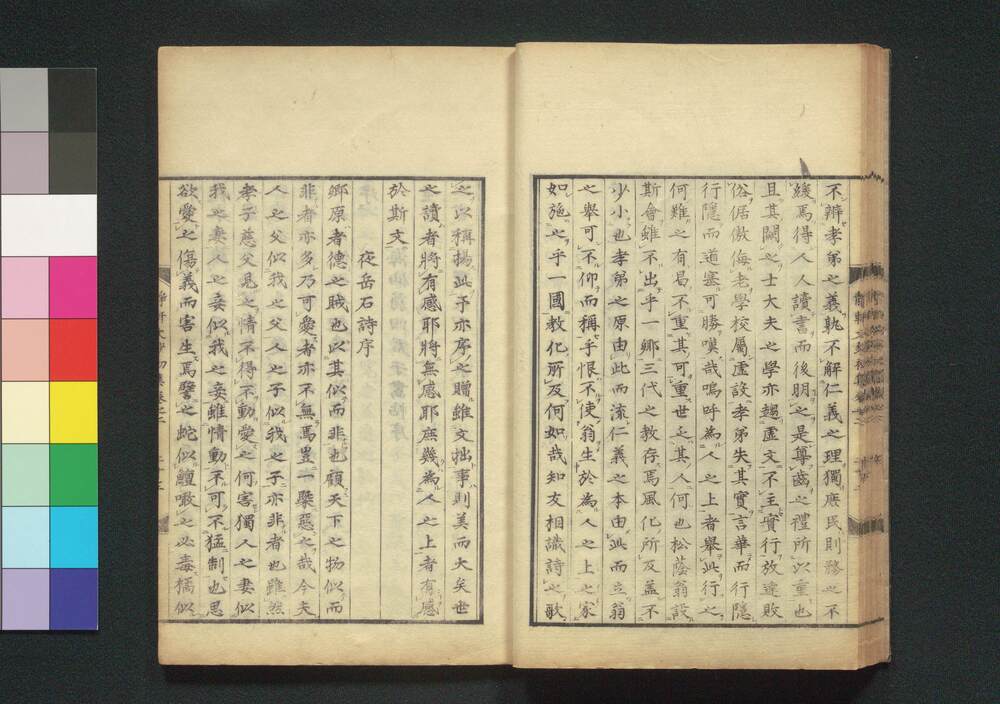 不辯孝弟之義孰不解仁義之理獨庶民則務之不
緩焉得人人讀書而後朋之是尊齒之禮所以重也
且其闕之士大夫之學亦趨虛文不主實行放達敗
俗倨傲侮老學校屬虛設孝弟失其實言華而行隱
行隱而道塞可勝嘆哉嗚呼為人之上者舉此行之
何難之有曷不重其可重世乏其人何也松蔭翁設
斯會雖不出乎一鄉三代之教存焉風化所及蓋不
少小也孝弟之原由此而流仁義之本由此而立翁
之舉可不仰而稱乎恨不使翁生於為人之上之家
如施之乎一國教化所及何如哉知友相識詩之歌
之以稱揚此予亦序之贈雖文拙事則美而大矣世
之讀者將有感耶將無感耶庶幾為人之上者有感
於斯文
夜岳石詩序
鄉原者德之賊也以其似而非也顧天下之物似而
非者亦多乃可愛者亦不無焉豈一槩惡之哉今夫
人之父似我之父人之子似我之子亦非者也雖然
孝子慈父見之情不得不動愛之何害獨人之妻似
我之妻人之妾似我之妾雖情動不可不猛制也思
欲愛之傷義而害生焉譬之蛇似鱣噉之必毒橘似